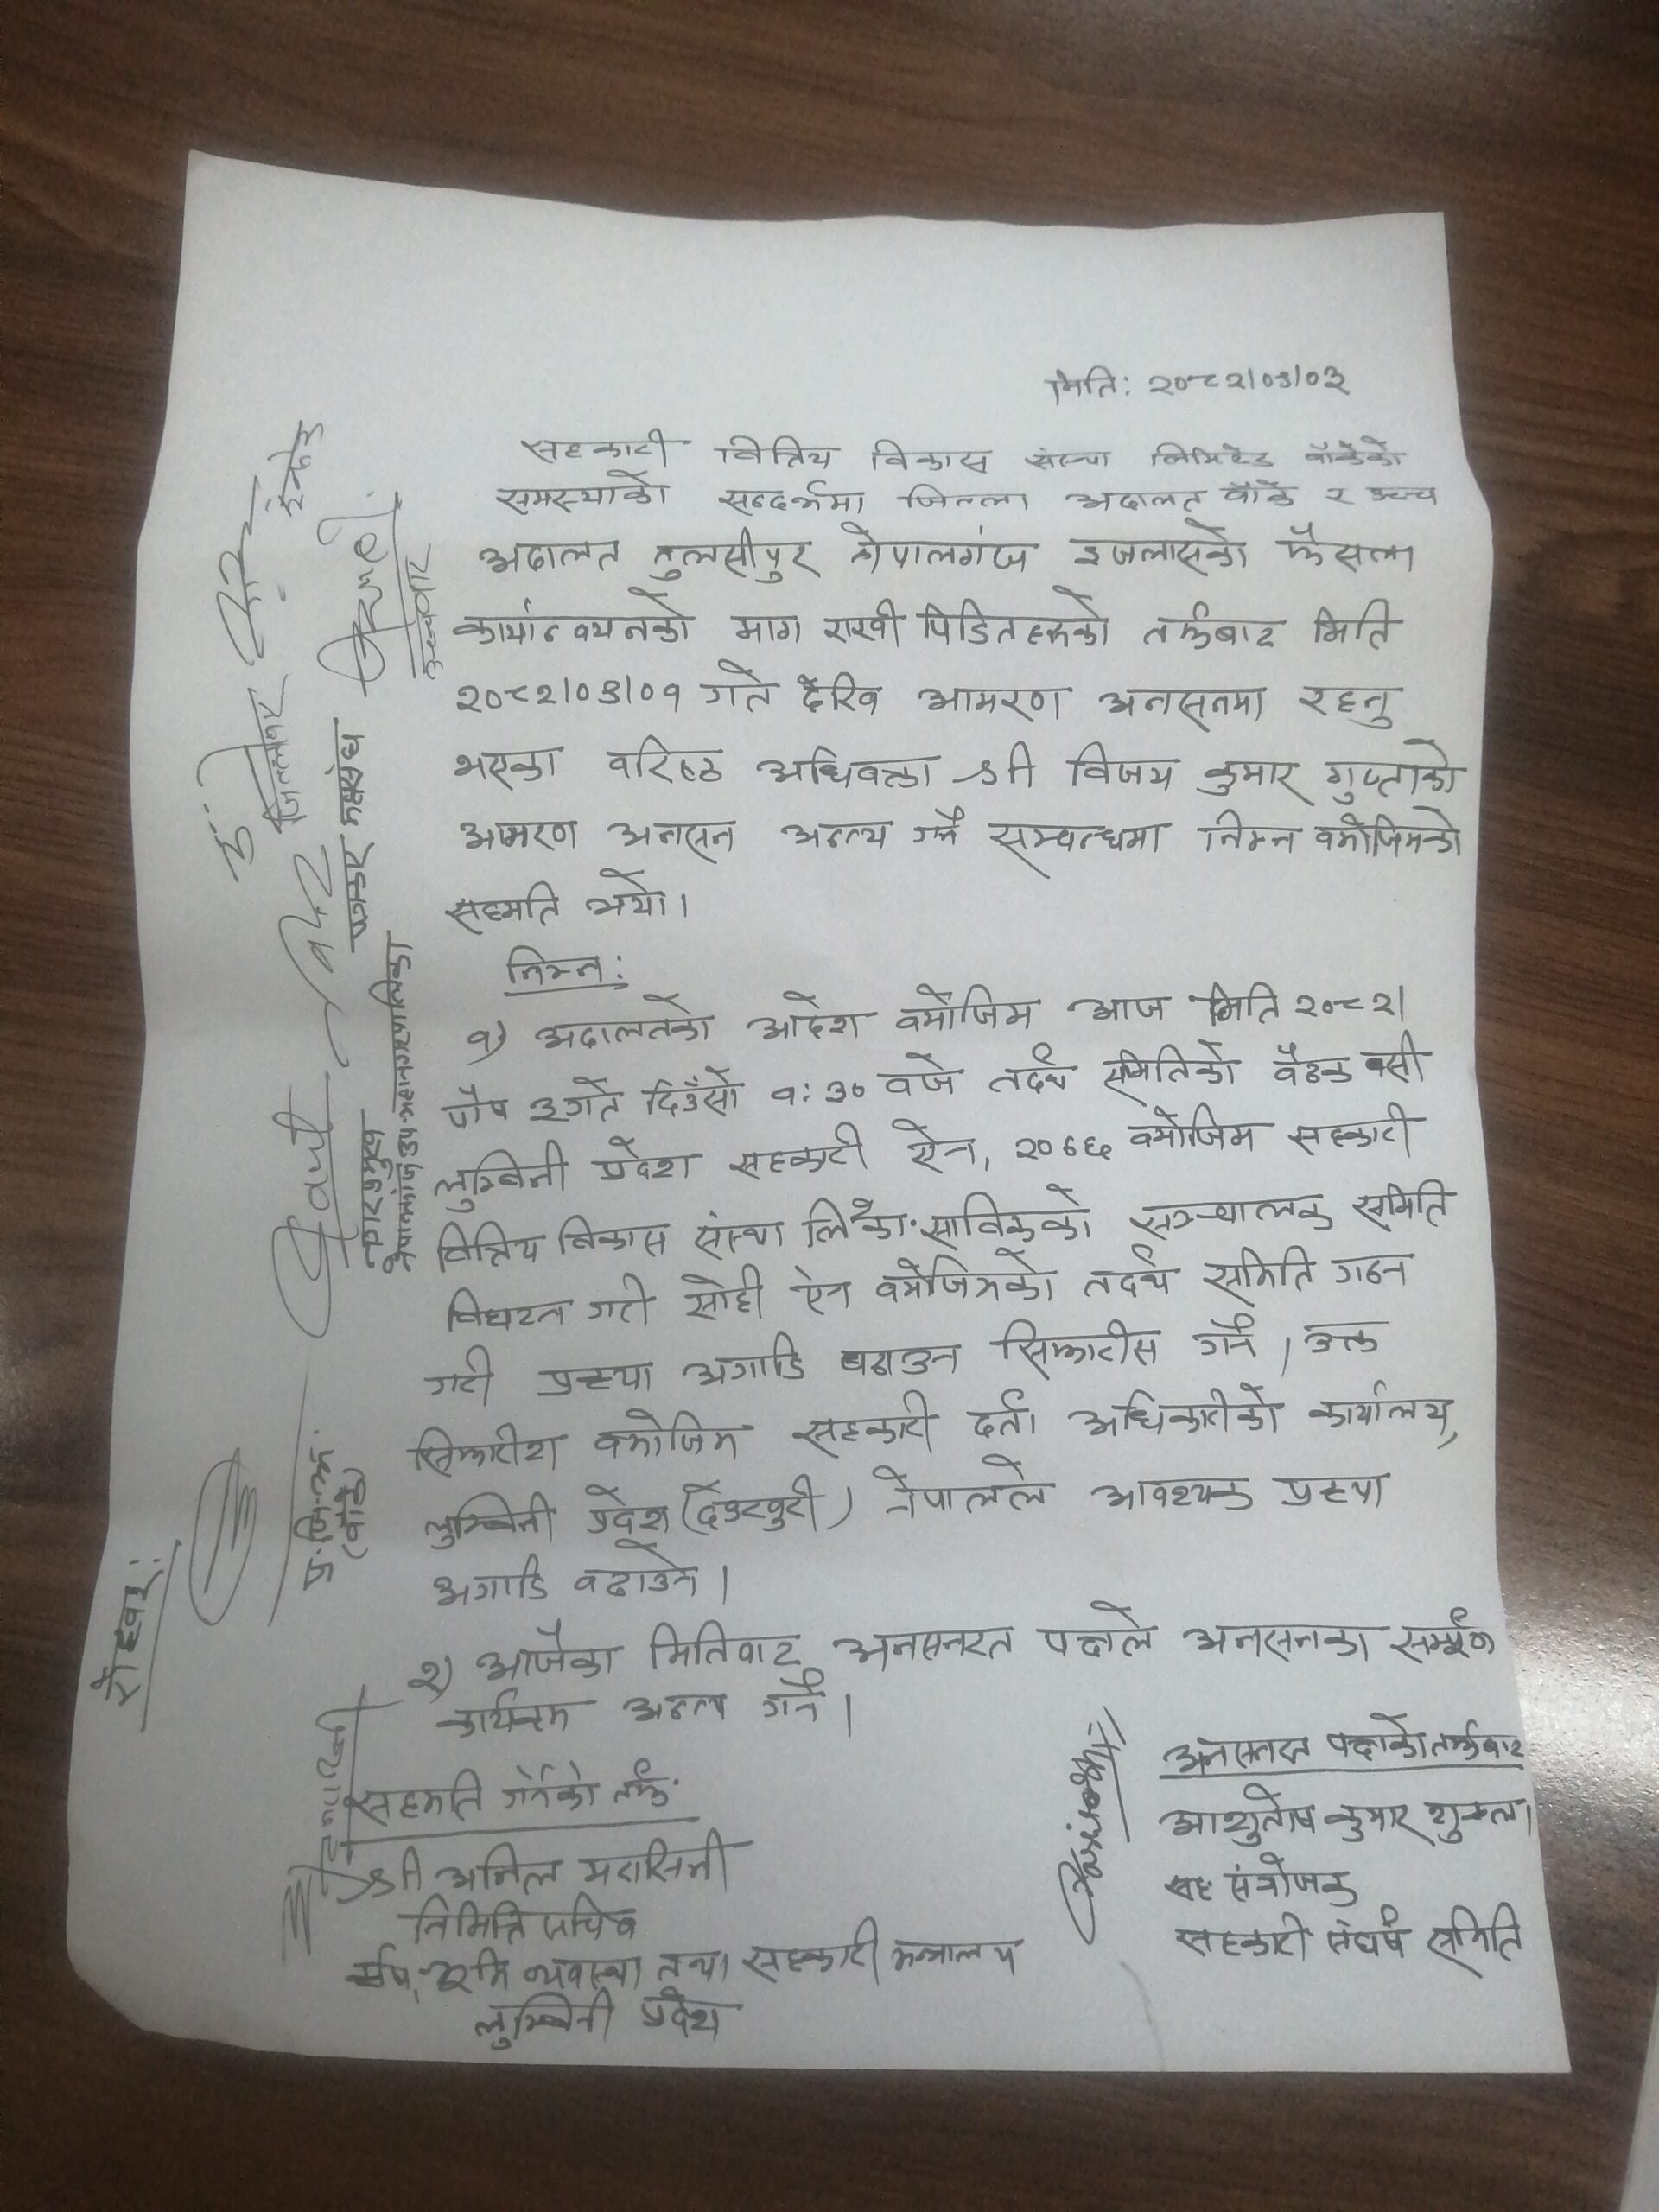 मिति: २०८२।०९।०३
सहकारी वित्तिय विकास संस्था लिमिटेड बाँकेको
समस्याको सन्दर्भमा जिल्ला अदालत बाँके र उच्च
अदालत तुलसीपुर नेपालगंज इजलासको फैसला
कार्यान्वयनको माग राखी पिडितहरुको तर्फबाट मिति
२०८२।०९।०१ गते देखि आमरण अनसनमा रहनु
भएका वरिष्ठ अधिवक्ता श्री विजय कुमार गुप्ताको
आमरण अनसन अन्त्य गर्ने सम्बन्धमा निम्न बमोजिमको
सहमति भयो।
निम्न:
१) अदालतको आदेश बमोजिम आज मिति २०८२।
पौष ३ गते दिउँसो १:३० बजे तदर्थ समितिको बैठक बसी
लुम्बिनी प्रदेश सहकारी ऐन, २०७६ बमोजिम सहकारी
वित्तिय विकास संस्था लि. साविकको सञ्चालक समिति
विघटन गरी सोही ऐन बमोजिमको तदर्थ समिति गठन
गरी प्रकृया अगाडि बढाउन सिफारीस गर्ने। उक्त
सिफारीश बमोजिम सहकारी दर्ता अधिकारीको कार्यालय,
लुम्बिनी प्रदेश (देउखुरी) नेपालले आवश्यक प्रकृया
अगाडि बढाउने।
२) आजैका मितिबाट अनसनरत पक्षले अनसनका सम्पूर्ण
कार्यक्रम अन्त्य गर्ने।
सहमति गर्नेको तर्फ
श्री अनिल मरासिनी
निमित्त सचिव
कृषि, भूमि व्यवस्था तथा सहकारी मन्त्रालय
लुम्बिनी प्रदेश
अनसनरत पक्षको तर्फबाट
आशुतोष कुमार शुक्ला
सह संयोजक
सहकारी संघर्ष समिति
रोहवर:
प्र. जि. अ.
(बाँके)
नगर प्रमुख
नेपालगंज उप-महानगरपालिका
जिल्ला बार
उच्च बार